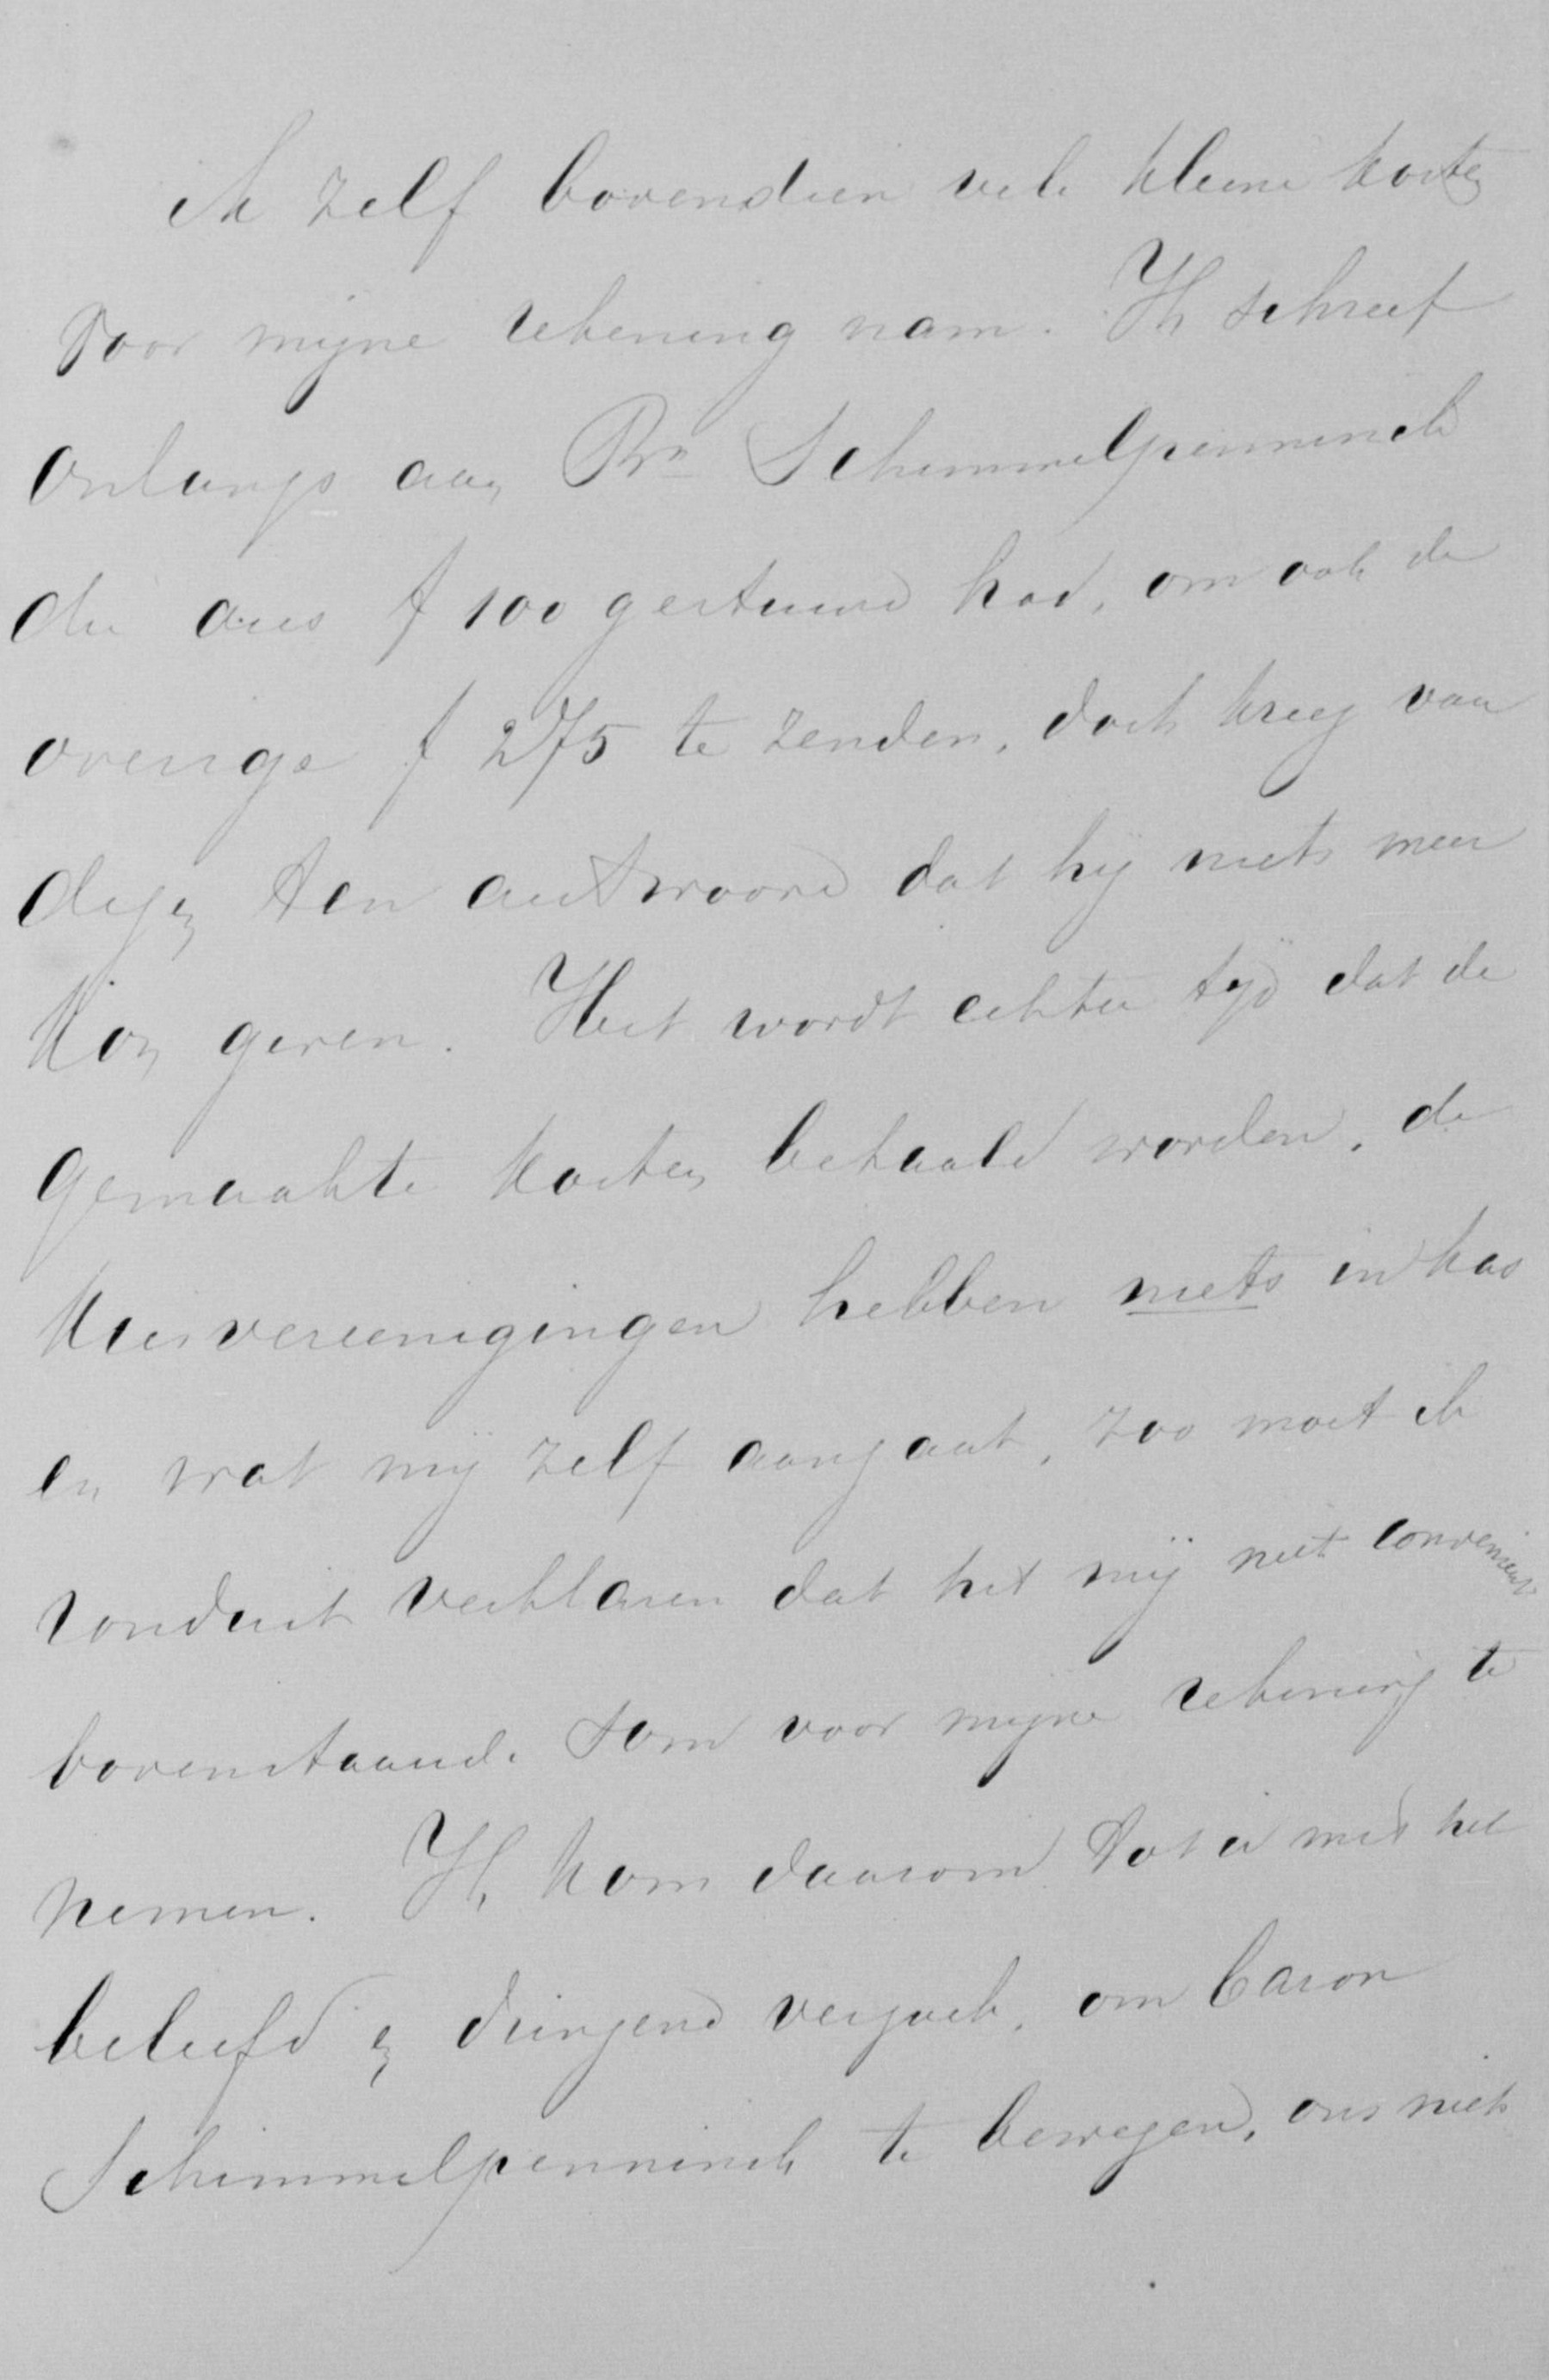 ik zelf bovendien vele kleine kosten
voor mijne rekening nam. Ik schreef
onlangs aan Bn Schimmelpenninck
die ons f 100 gestuurd had, om ook de
overige f 275 te zenden, doch kreeg van
dezen ten antwoord dat hij niets meer
kon geven. Het wordt echter tijd dat de
gemaakte kosten betaald worden, de
kiesvereenigingen hebben niets in kas
en wat mij zelf aangaat, zoo moet ik
ronduit verklaren dat het mij niet convenieert
bovenstaande som voor mijne rekening te
nemen. Ik kom daarom tot u met het
beleefd en dringend verzoek, om Baron
Schimmelpenninck te bewegen, ons niet